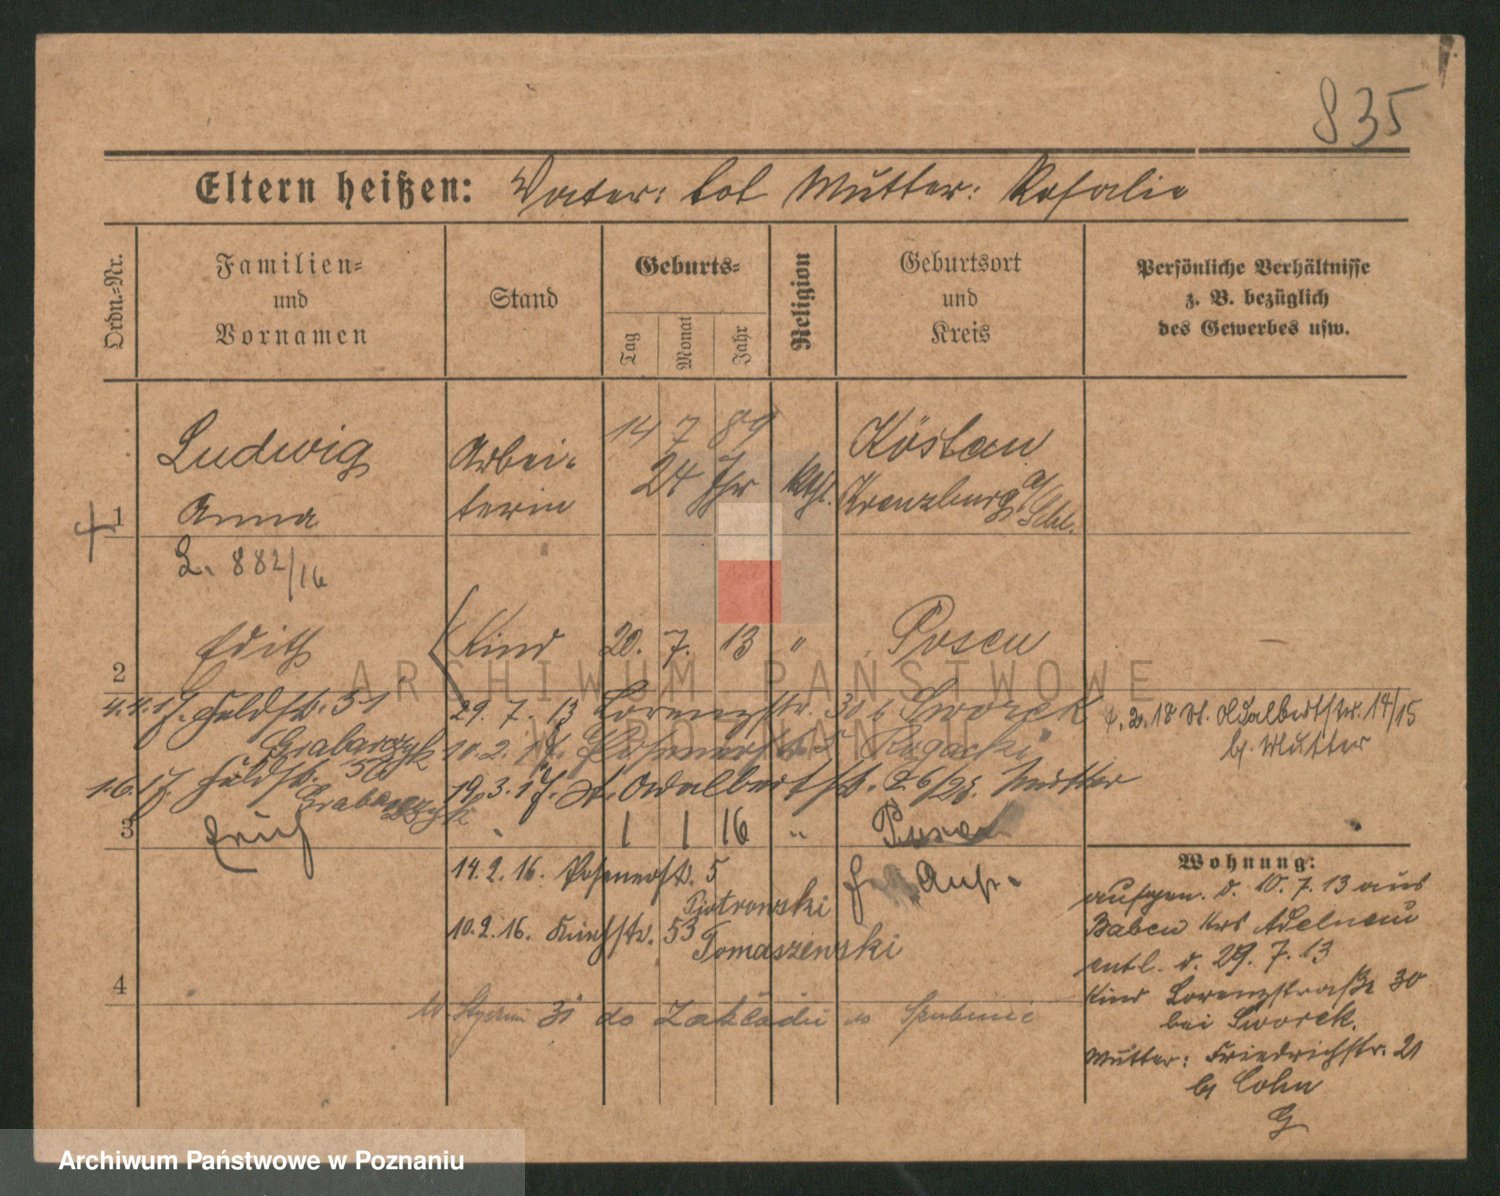 835
Eltern heißen: Vater: tot Mutter: Rosalie
Ordn.-Nr.
Familien-
und
Vornamen
Stand
Geburts-
Tag
Monat
Jahr
Religion
Geburtsort
und
Kreis
Persönliche Verhältnisse
z. B. bezüglich
des Gewerbes usw.
14 7 89
Ludwig Arbei- 24 Jhr Kthl. Köstau
1 Anna terin Kreuzburg O/Schl.
L. 882/16
2 Edith Kind 20. 7. 13 " Posen —
4.4.17. Feldstr. 51
Grabarczyk
1.6.17. Feldstr. 50
Grabarczyk
29. 7. 13 Lorenzstr. 30 b. Sworek
10.2.14. Posenerstr. 5 Rogacki
19.3.17. St. Adalbertstr. 26/28. Mutter
7.2.18 St. Adalbertstr. 14/15
b. Mutter
3 Erich 1 1 16 " Posen
14.2.16. Posenerstr. 5
Piotrowski
10.9.16. Kirchstr. 53
Tomaszewski
4
31 do Zakładu
Wohnung:
aufgen. d. 10.7.13 aus
Baben Krs Adelnau
entl. d. 29. 7. 13
Kind Lorenzstraße 30
bei Sworek.
Mutter: Friedrichstr. 21
b. Cohn
ARCHIWUM PAŃSTWOWE
W POZNANIU
Archiwum Państwowe w Poznaniu